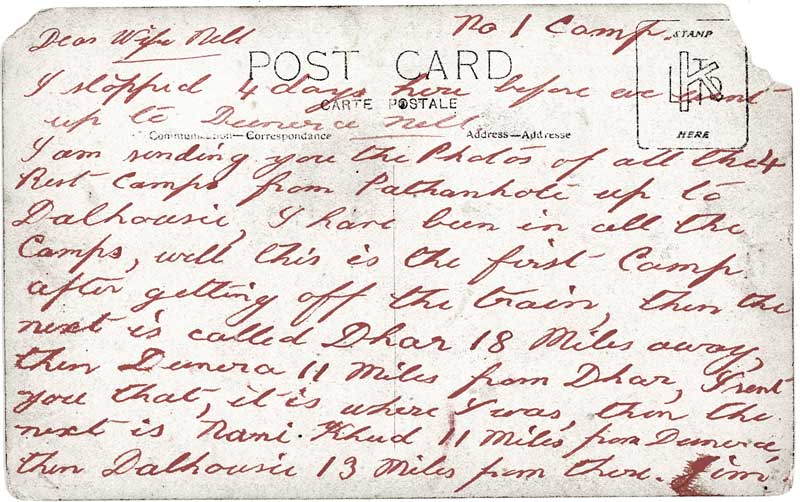 No 1 Camp.
Dear Wife Nell
STAMP
POST CARD
I stopped 4 days here before we went
CARTE POSTALE
up to Dunera Nell,
Communication—Correspondance
Address—Addresse
HERE
I am sending you the Photos of all the 4
Rest Camps from Pathankote up to
Dalhousie, I have been in all the
Camps, well this is the first Camp
after getting off the train, then the
next is called Dhar 18 Miles away,
then Dunera 11 Miles from Dhar, I sent
you that, it is where I was, then the
next is Nani Khud 11 Miles from Dunera,
then Dalhousie 13 Miles from there. Jim